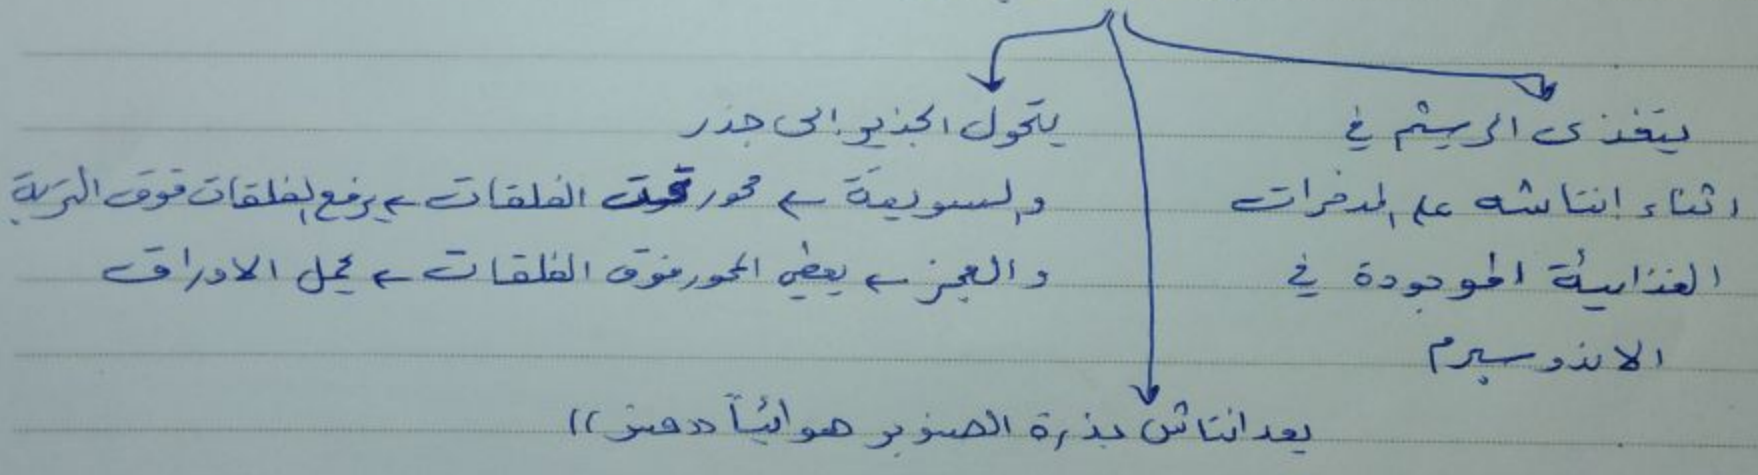 يتغذى الرشيم في
اثناء انتاشه على المدخرات
الغذائية الموجودة في
الاندوسبرم
يتحول الجذير إلى جذر
والسويقة ← محور تحت الفلقات ← يرفع الفلقات فوق التربة
والعجز ← يعطي المحور فوق الفلقات ← يحمل الاوراق
يعد انتاش بذرة الصنوبر هوائياً ((